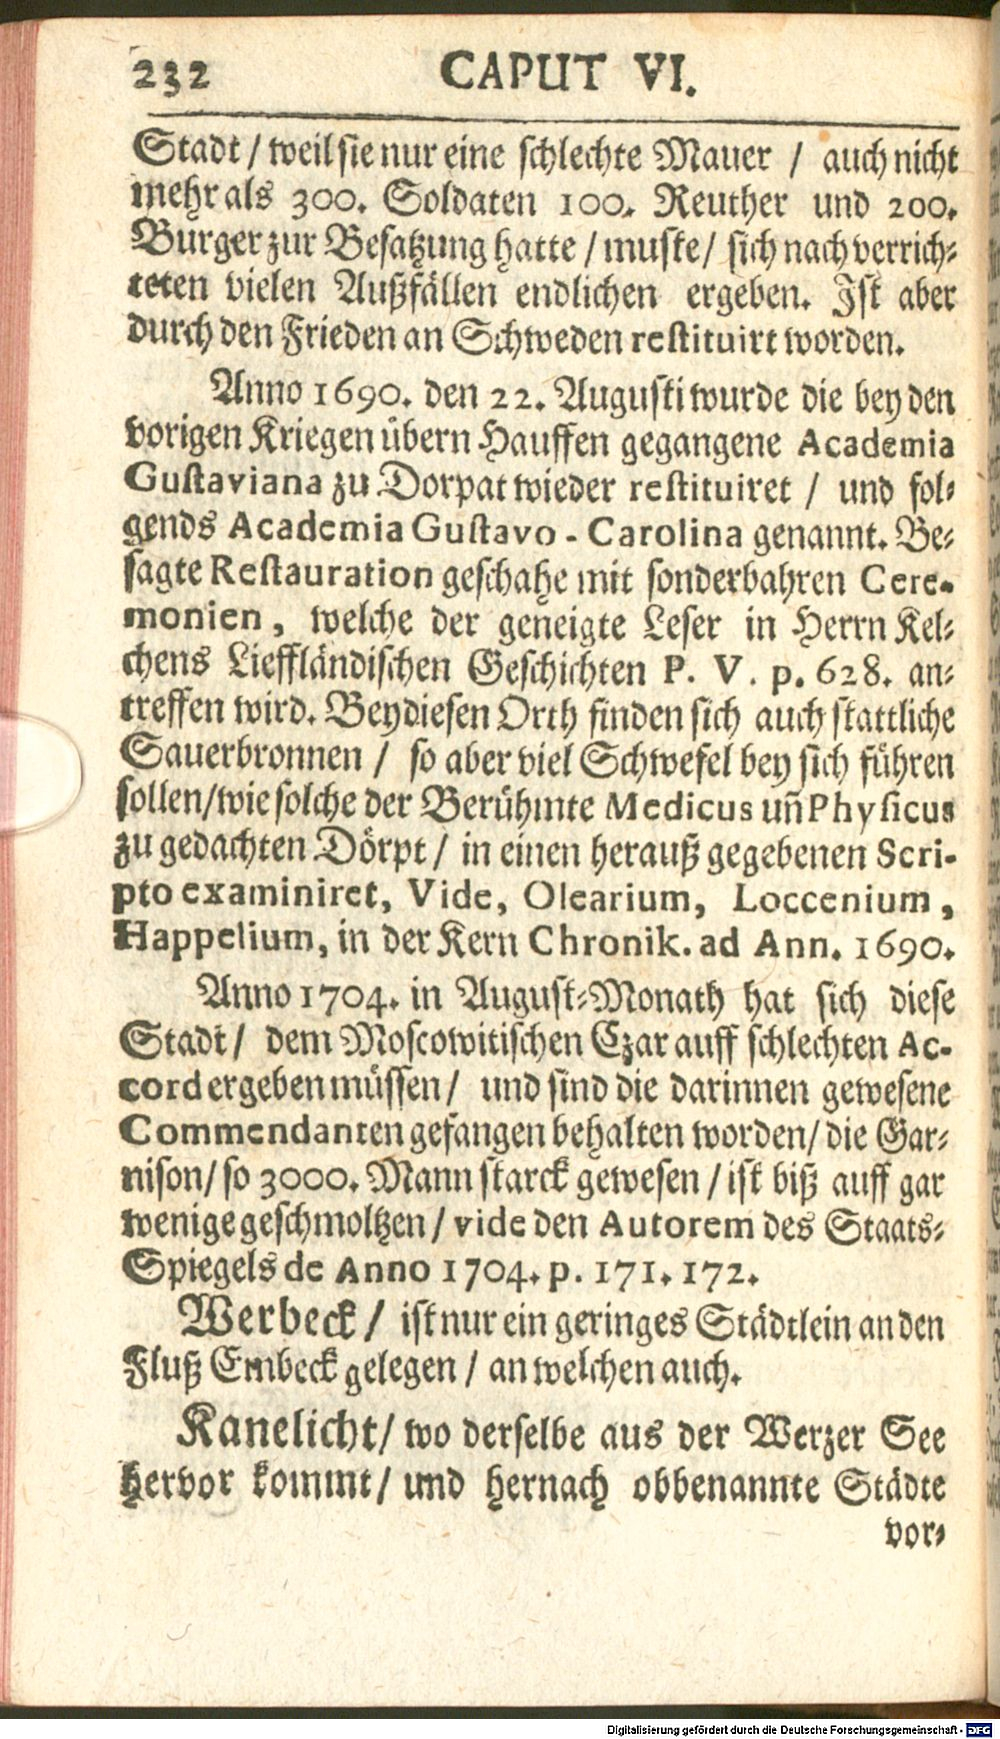 232 CAPUT VI.
Stadt / weil sie nur eine schlechte Mauer / auch nicht
mehr als 300. Soldaten 100. Reuther und 200.
Burger zur Besatzung hatte / muste / sich nach verrich-
teten vielen Außfällen endlichen ergeben. Ist aber
durch den Frieden an Schweden restituirt worden.
Anno 1690. den 22. Augusti wurde die bey den
vorigen Kriegen übern Hauffen gegangene Academia
Gustaviana zu Dorpat wieder restituiret / und fol-
gends Academia Gustavo - Carolina genannt. Be-
sagte Restauration geschahe mit sonderbahren Cere-
monien, welche der geneigte Leser in Herrn Kel-
chens Lieffländischen Geschichten P. V. p. 628. an-
treffen wird. Bey diesen Orth finden sich auch stattliche
Sauerbronnen / so aber viel Schwefel bey sich führen
sollen / wie solche der Berühmte Medicus uñ Physicus
zu gedachten Dörpt / in einen herauß gegebenen Scri-
pto examiniret, Vide, Olearium, Loccenium,
Happelium, in der Kern Chronik. ad Ann. 1690.
Anno 1704. in August-Monath hat sich diese
Stadt / dem Moscowitischen Czar auff schlechten Ac-
cord ergeben müssen / und sind die darinnen gewesene
Commendanten gefangen behalten worden / die Gar-
nison / so 3000. Mann starck gewesen / ist biß auff gar
wenige geschmoltzen / vide den Autorem des Staats-
Spiegels de Anno 1704. p. 171. 172.
Werbeck / ist nur ein geringes Städtlein an den
Fluß Embeck gelegen / an welchen auch.
Kanelicht / wo derselbe aus der Werzer See
hervor kommt / und hernach obbenannte Städte
vor-
Digitalisierung gefördert durch die Deutsche Forschungsgemeinschaft - DFG